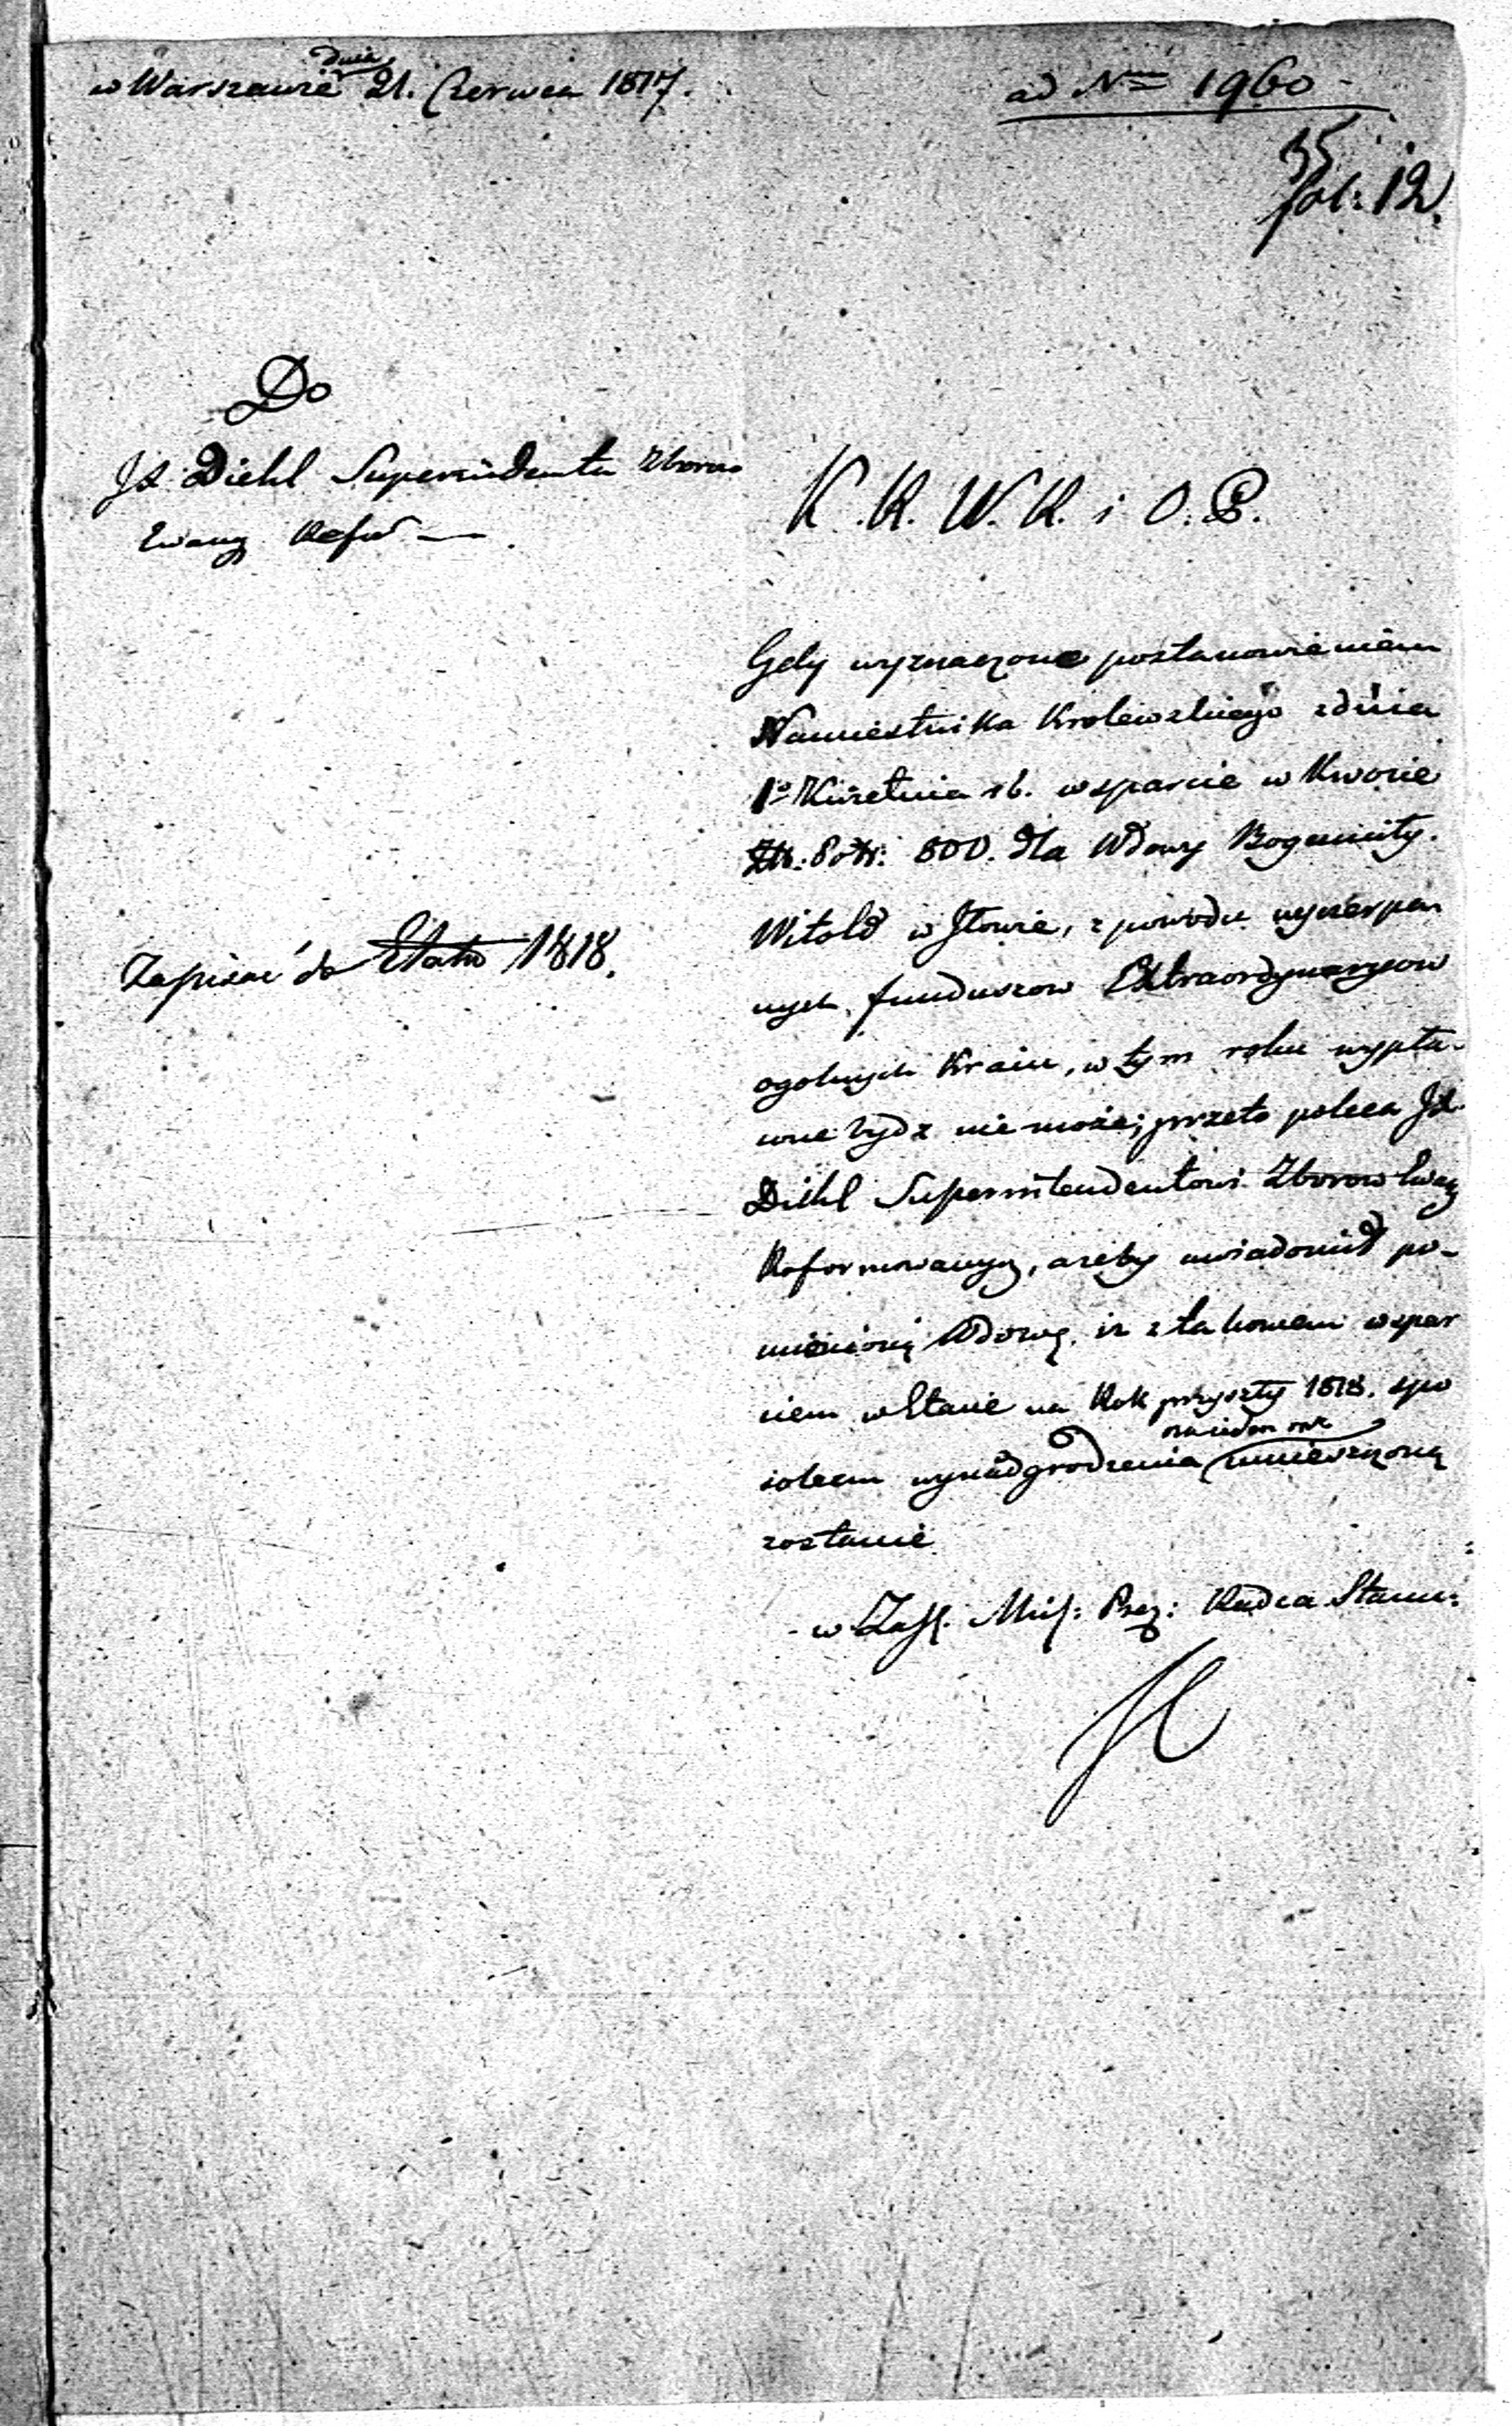 w Warszawie dnia 21. Czerwca 1817.
ad No 1960
35
fol: 12.
Do
Diehl Superindenta Zborow
Ewang Refor
K. R. W. R. i O. P.
Gdy wyznaczone postanowieniem
Namiestnika Krolewskiego zdnia
1o Kwietnia rb. wsparcie w Kwocie
Złt: Pols: 800. dla Wdowy Bogumiły
Witold w , z powodu wyczerpa
nych funduszow Extraordynaryow
ogolnych Kraiu, w tym roku wypła-
cone bydz nie może; przeto poleca
Diehl Superintendentowi Zborow Ewang
Reformowanych, azeby uwiadomił po-
mienioną Wdowę, iz z takowem wspar
ciem w Etacie na Rok przyszły 1818. spo
sobem wynadgrodzenia na ieden rok umieszczoną
zostanie
Zapisać do Etatu 1818.
w Zast. Min: Prez: Radca Stanu: